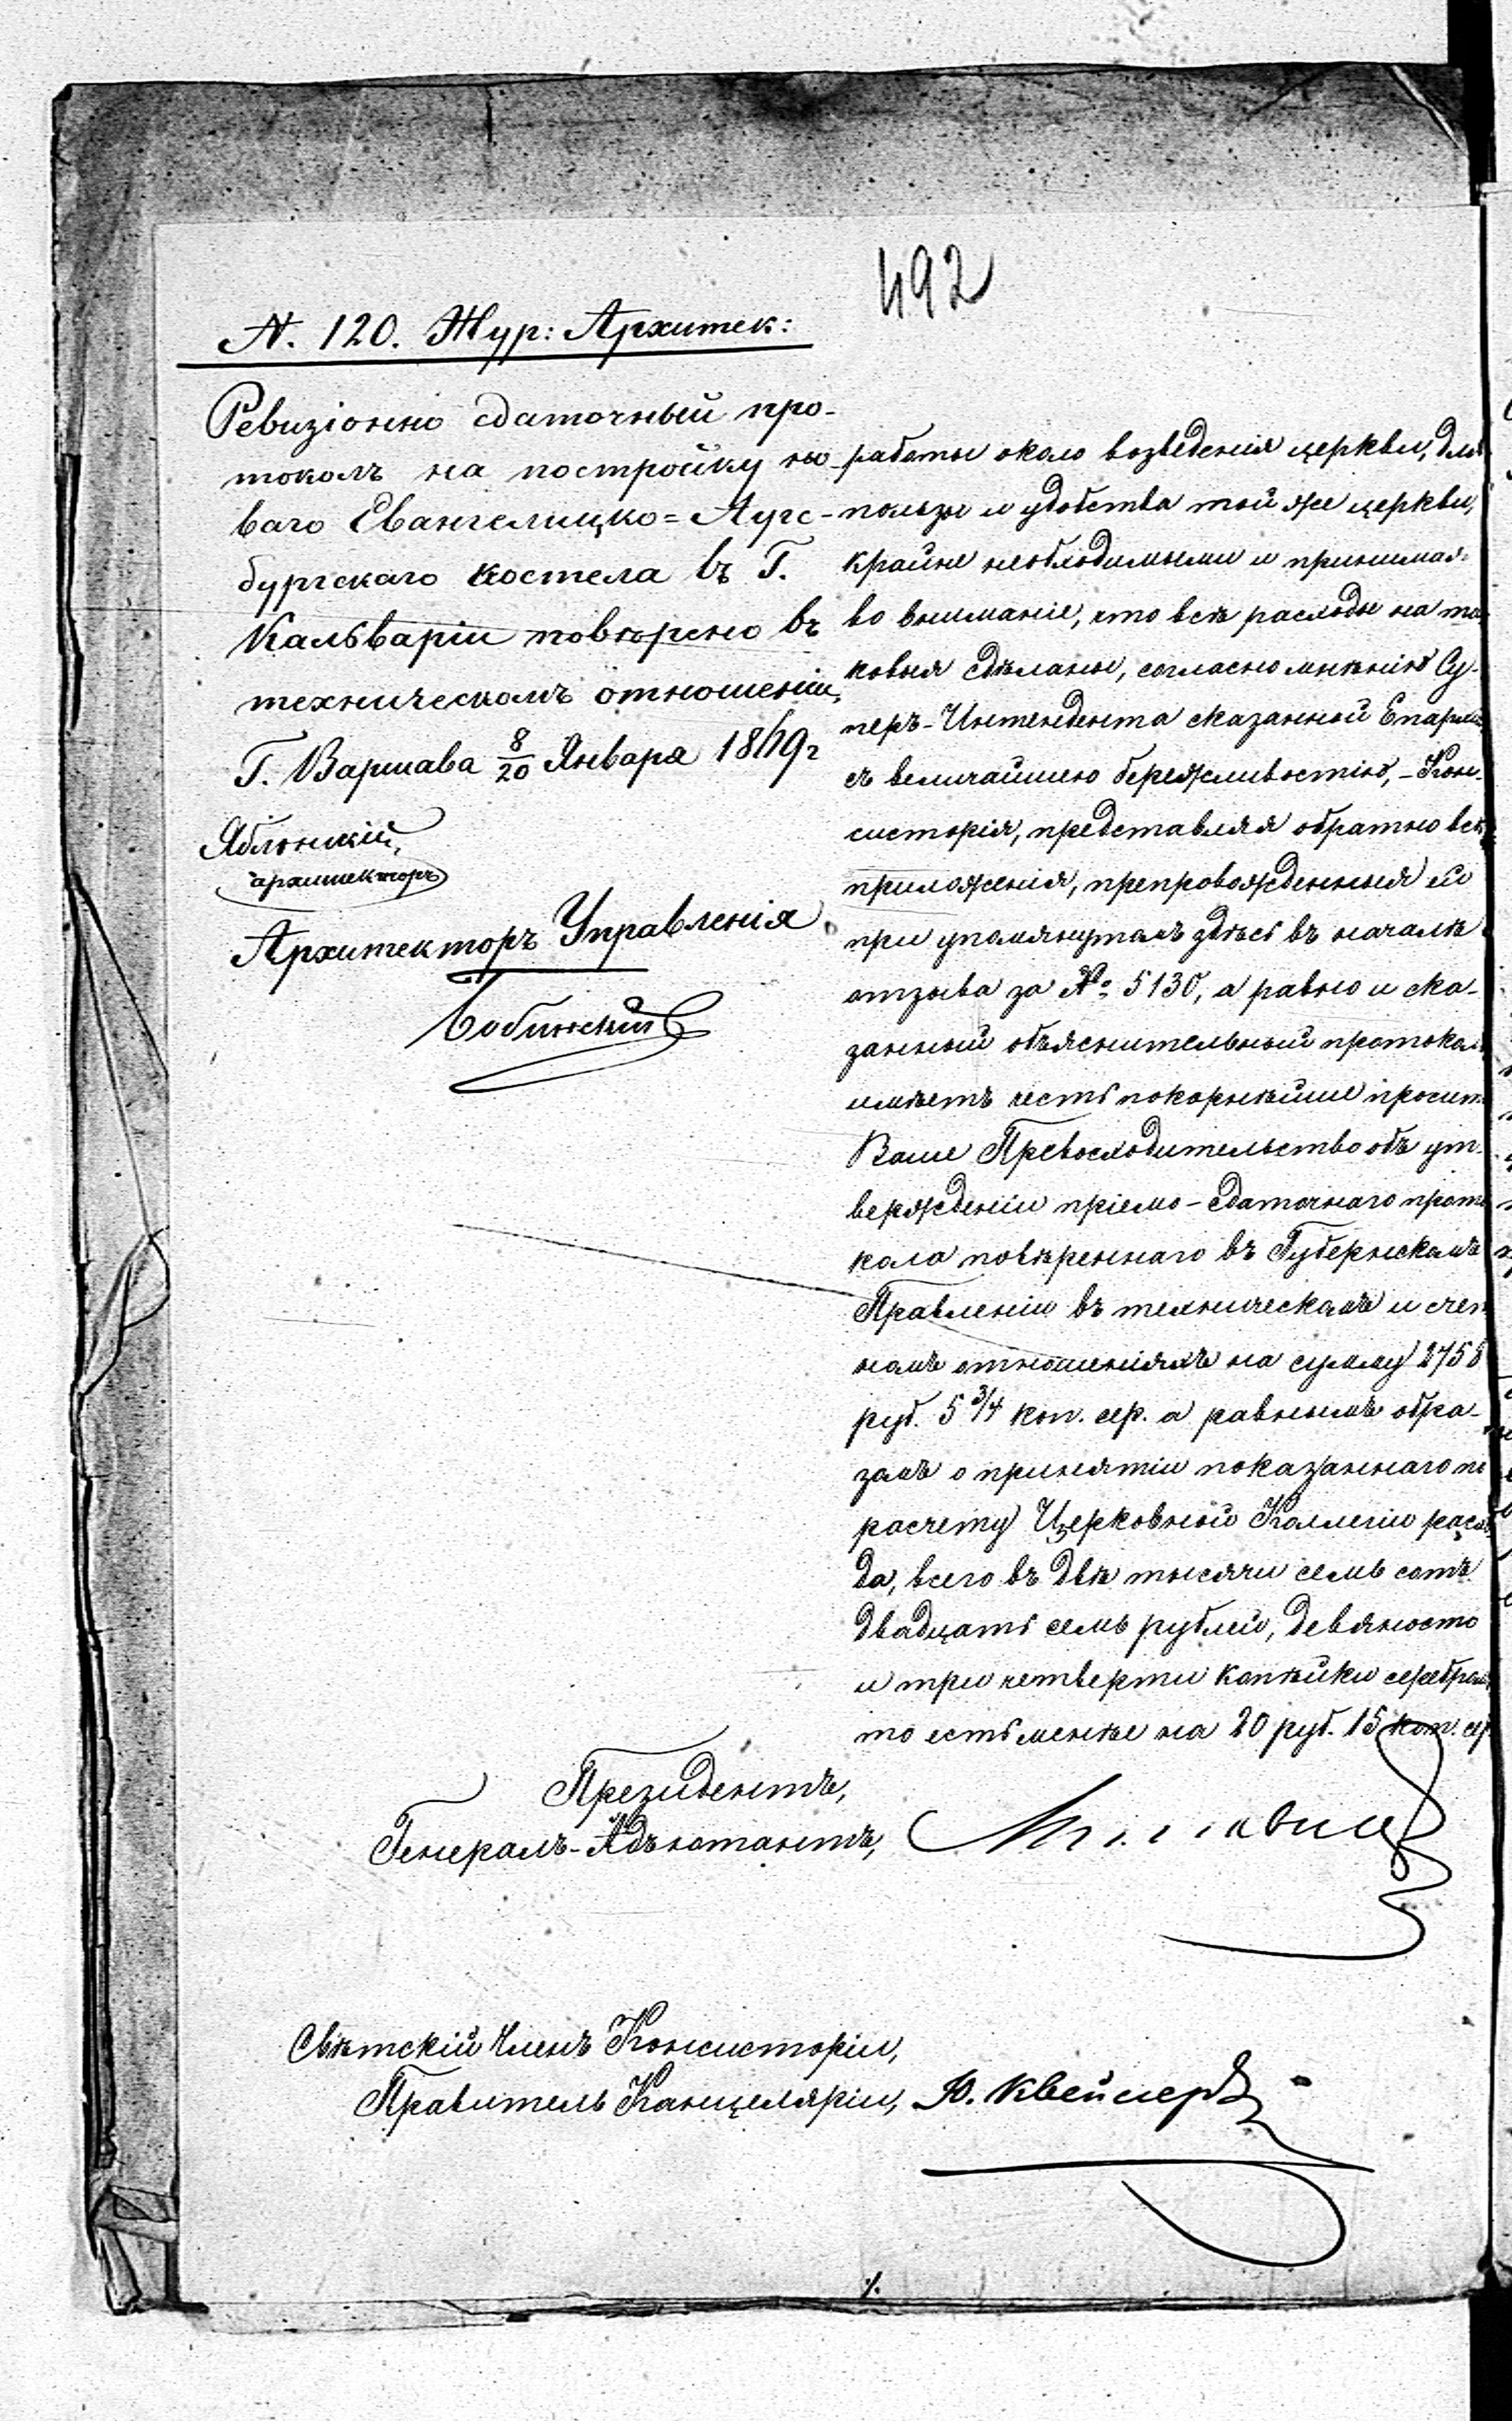 492
N. 120. Жур: Архитек:
Ревизіонно сдаточный про-
токолъ на постройку но-
ваго Евангелицко=Аугс-
бургскаго костела въ Г.
Кальваріи повѣрено въ
техническомъ отношеніи,
Г. Варшава 8/20 Января 1869 г
Яблонскій,
архитекторъ
Архитекторъ Управленія
работы около возведенія церкви, для
пользы и удобства той же церкви,
крайне необходимыми и принимая
во вниманіе, что всѣ расходы на та
ковыя сдѣланы, согласно мнѣнію Су-
перъ-Интендента сказанной Епархіи
съ величайшею бережливостію, - Кон-
систорія, представляя обратно всѣ
приложенія, препровожденныя ей
при упомянутомъ здѣсь въ началѣ
отзыва за № 5130, а равно и ска-
занный объяснительный протоколъ
имѣетъ честь покорнѣйше просить
Ваше Превосходительство объ ут-
вержденіи пріемо-сдаточнаго прото
кола повѣреннаго въ Губернскомъ
Правленіи въ техническомъ и счет
номъ отношеніяхъ на сумму 2758
руб. 5 3/4 коп. сер. а равнымъ обра-
зомъ о принятіи показаннаго по
расчету Церковной Коллегіи расхо
да, всего въ двѣ тысячи семь сотъ
двадцать семь рублей, девяносто
и три четверти копѣйки серебромъ
то есть менѣе на 20 руб. 15 коп. сер.
Президентъ,
Генералъ-Адъютантъ,
Свѣтскій Членъ Консисторіи,
Правитель Канцеляріи, Ю.